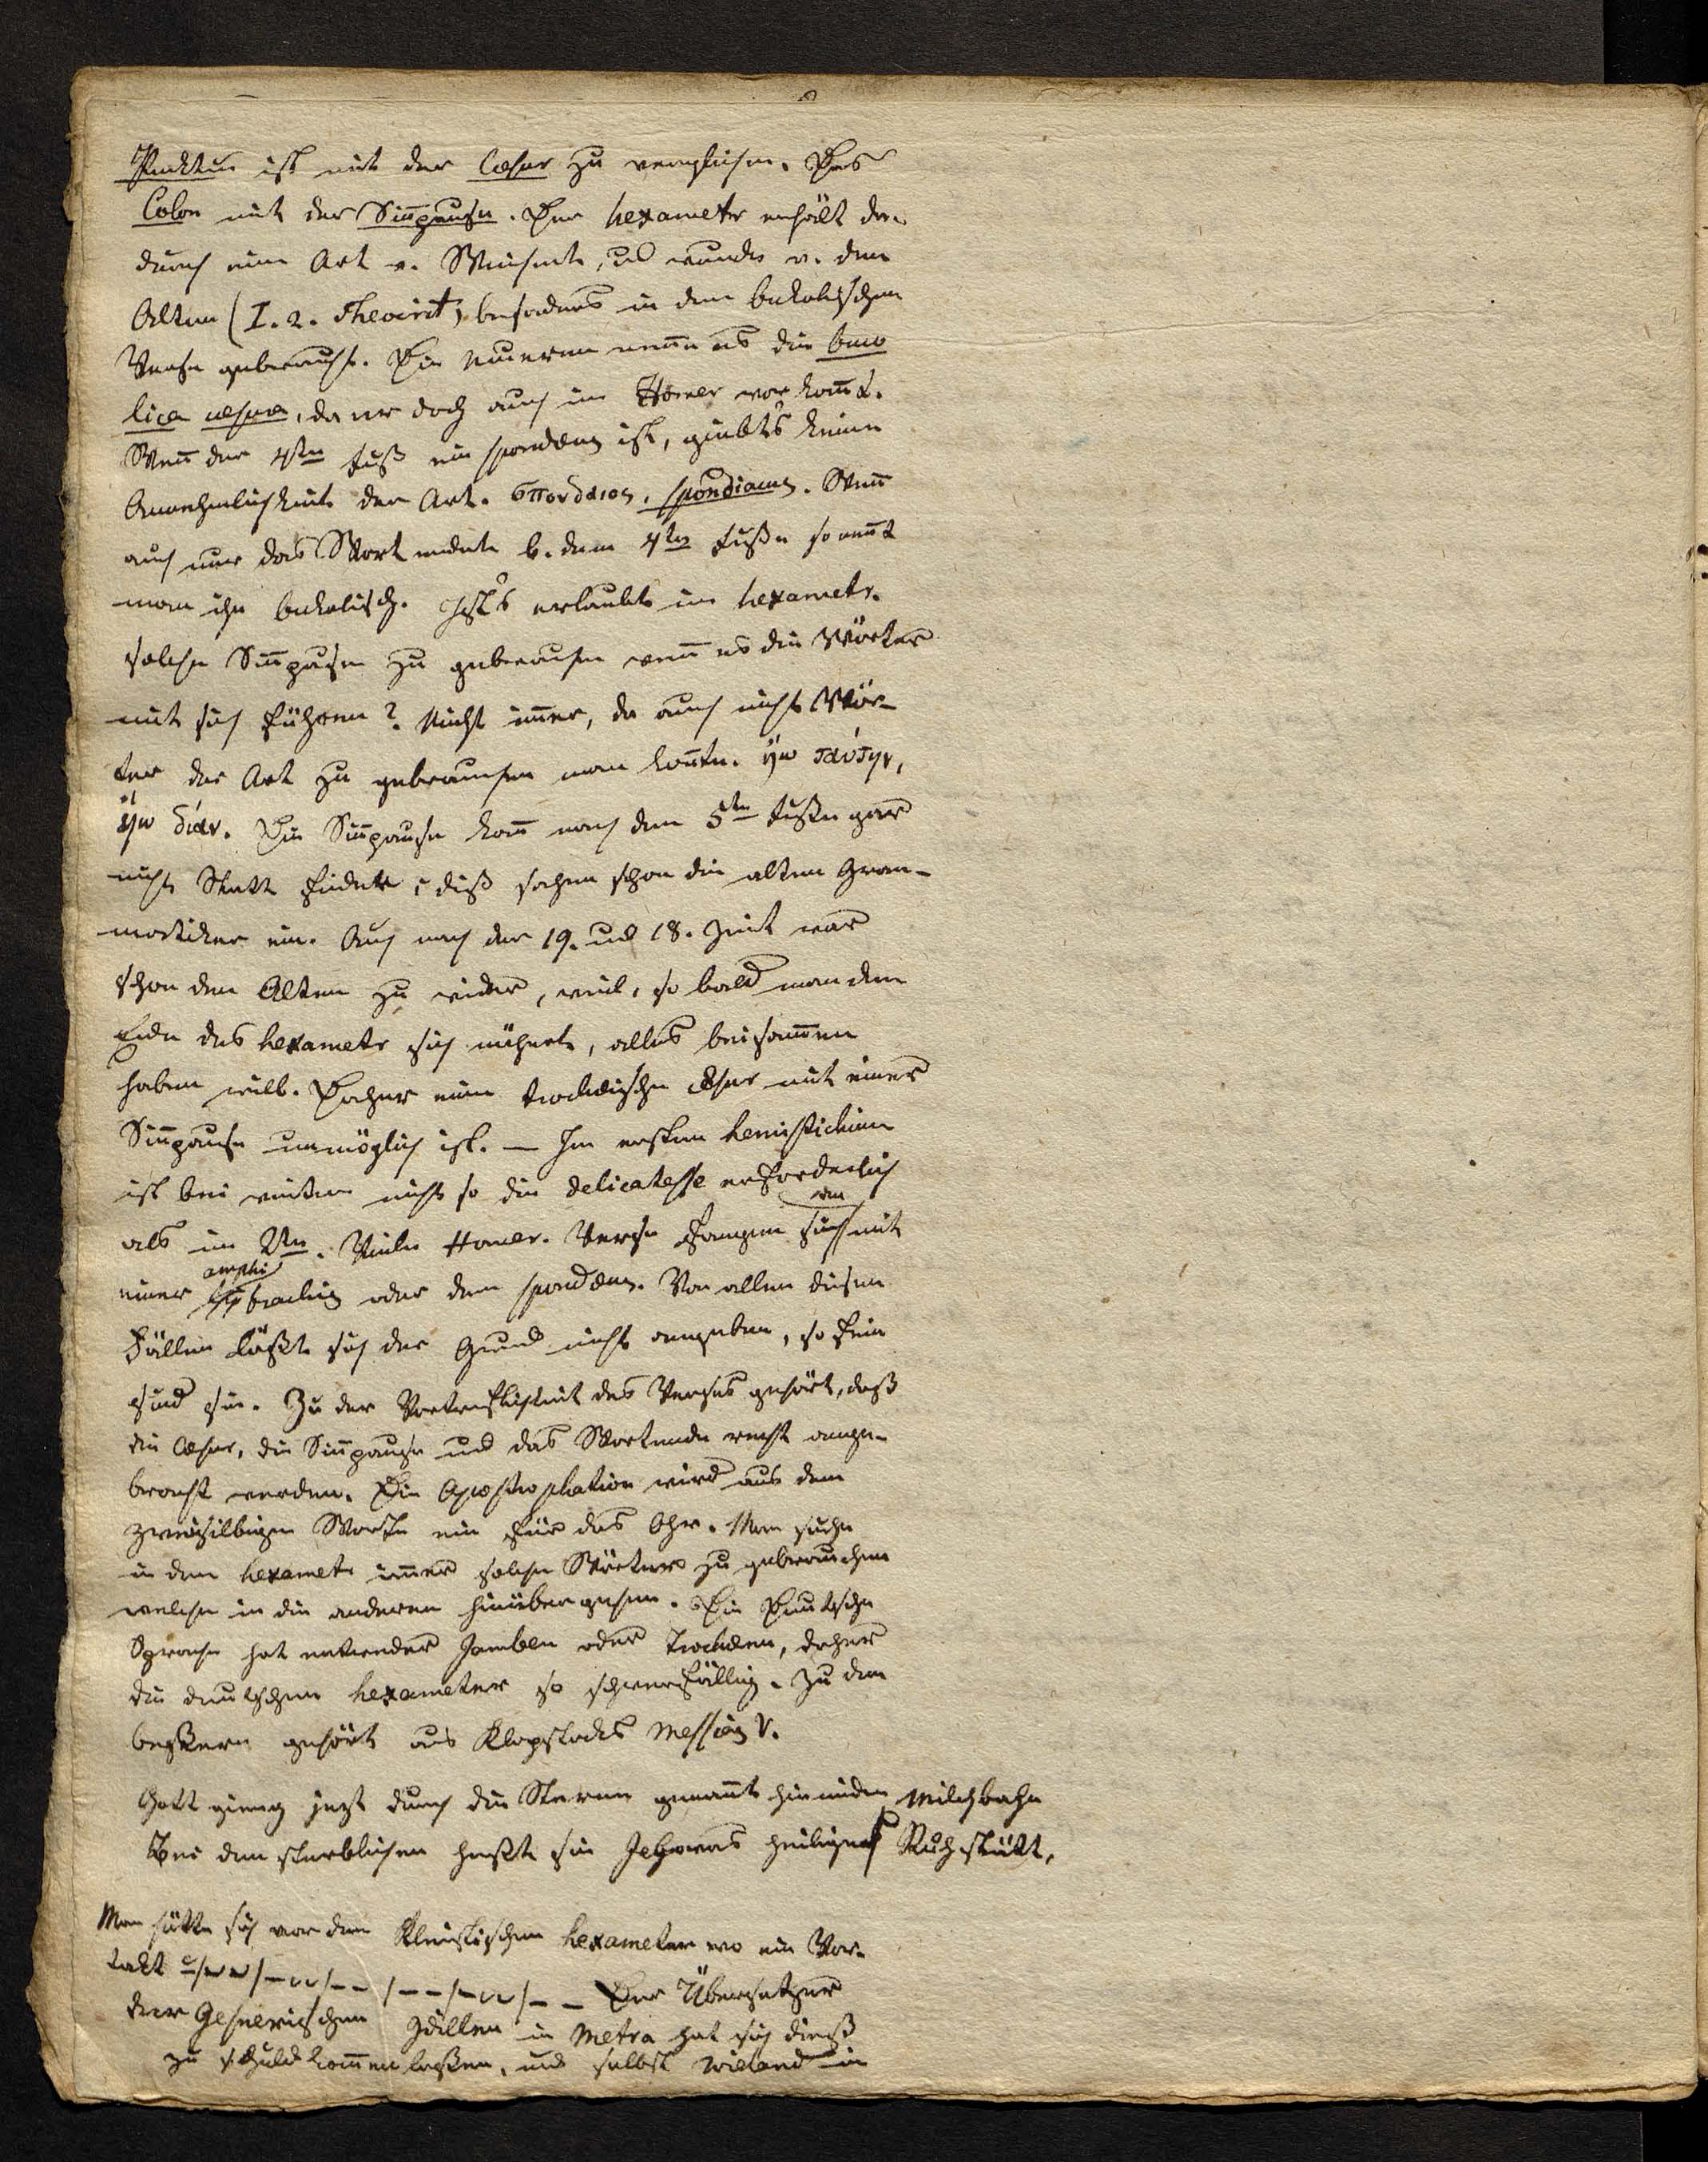 Punktum ist mit der Cæsur zu vergleichen. Das
Colon mit der Sinnpause. Der hexametr erhält da-
durch eine Art v. Weichheit, und wurde v. den
Alten (I. 2. Theocrit) besonders in den bukolischen
Versen gebraucht. Die neueren nennen es die buco
lica cæsura, da er doch auch im Homer vorkom̄t.
Wen̄ der 4te Fuß ein spondæus ist, giebts keine
Annehmlichkeit der Art. σπονδαιος, spondiacus. Wen̄
auch nur das Wort endete b. dem 4ten Fuße so nen̄t
man ihn bukolisch. Ists erlaubt im hexametr.
solche Sin̄pausen zu gebrauchen wen̄ es die Wörter
mit sich führen? Nicht im̄er, da auch nicht Wör-
ter der Art zu gebrauchen man kon̄te.
Die Sin̄pause kan̄ nach dem 5ten Fuße gar
nicht Statt finden; diß sahen schon die alten Gram-
matiker ein. Auch nach der 19. und 18. Zeit war
schon den Alten zu wider, weil, so bald man dem
Ende des hexametr sich nähert, alles beisam̄en
haben will. Daher eine trochæische Cæsur mit einer
Sin̄pause unmöglich ist. — Im ersten hemistichium
ist bei weitem nicht so die delicatesse erforderlich
als im 2ten. Viele Homer. Verse fangen an mit
einer amphibrachys oder dem spondæus. Von allen diesen
Fällen läßt sich der Grund nicht angeben, so fein
sind sie. Zu der Vortreflichkeit des Verses gehört, daß
die Cæsur, die Sin̄pause und das Wortende recht ange-
bracht werden. Die Apostrophation wird aus dem
zweisilbigen Worte ein für das Ohr. Man suche
in dem hexametr im̄er solche Wörter zu gebrauchen
welche in die anderen hinübergehen. Die Deutsche
Sprache hat entweder Jamben oder Trochæen, daher
die deutschen hexameter so schwerfällig. Zu den
beßeren gehört aus Klopstocks Messias V.
Gott gieng jezt durch die Sterne genan̄t hinieden Milchbahn
Bei den sterblichen heißt sie Jehovas heiligen Ruhstätt,
Man hütte sich vor dem Kleistischen hexameter wo ein Vor-
takt ᴗ/‒ᴗᴗ/‒ᴗᴗ/‒‒/‒‒/‒ᴗᴗ/‒‒ Der Übersetzer
der Gesnerischen Idillen in Metra hat sich dieß
zu schuld kom̄en laßen, und selbst Wieland in